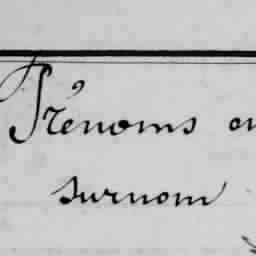 Prénoms ou
surnom